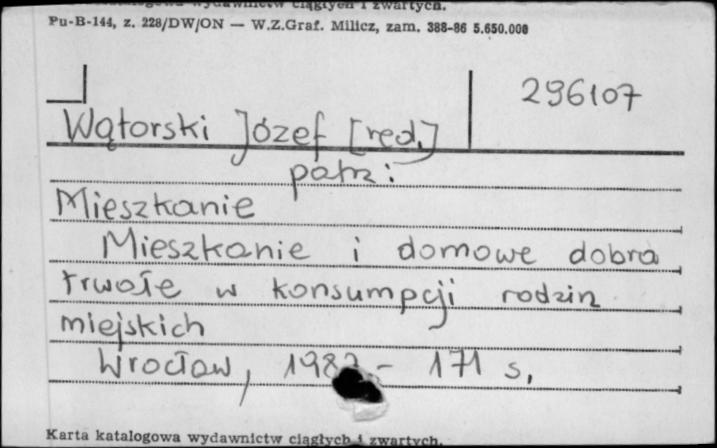 Karta katalogowa wydawnictw ciągłych i zwartych.
Pu-B-144, z. 228/DW/ON — W.Z.Graf. Milicz, zam. 388-86 5.650.000
296107
Wątorski Józef [red.]
patrz:
Mieszkanie
Mieszkanie i domowe dobra
trwałe w konsumpcji rodzin
miejskich
Wrocław, - 171 s.
Karta katalogowa wydawnictw ciągłych i zwartych.